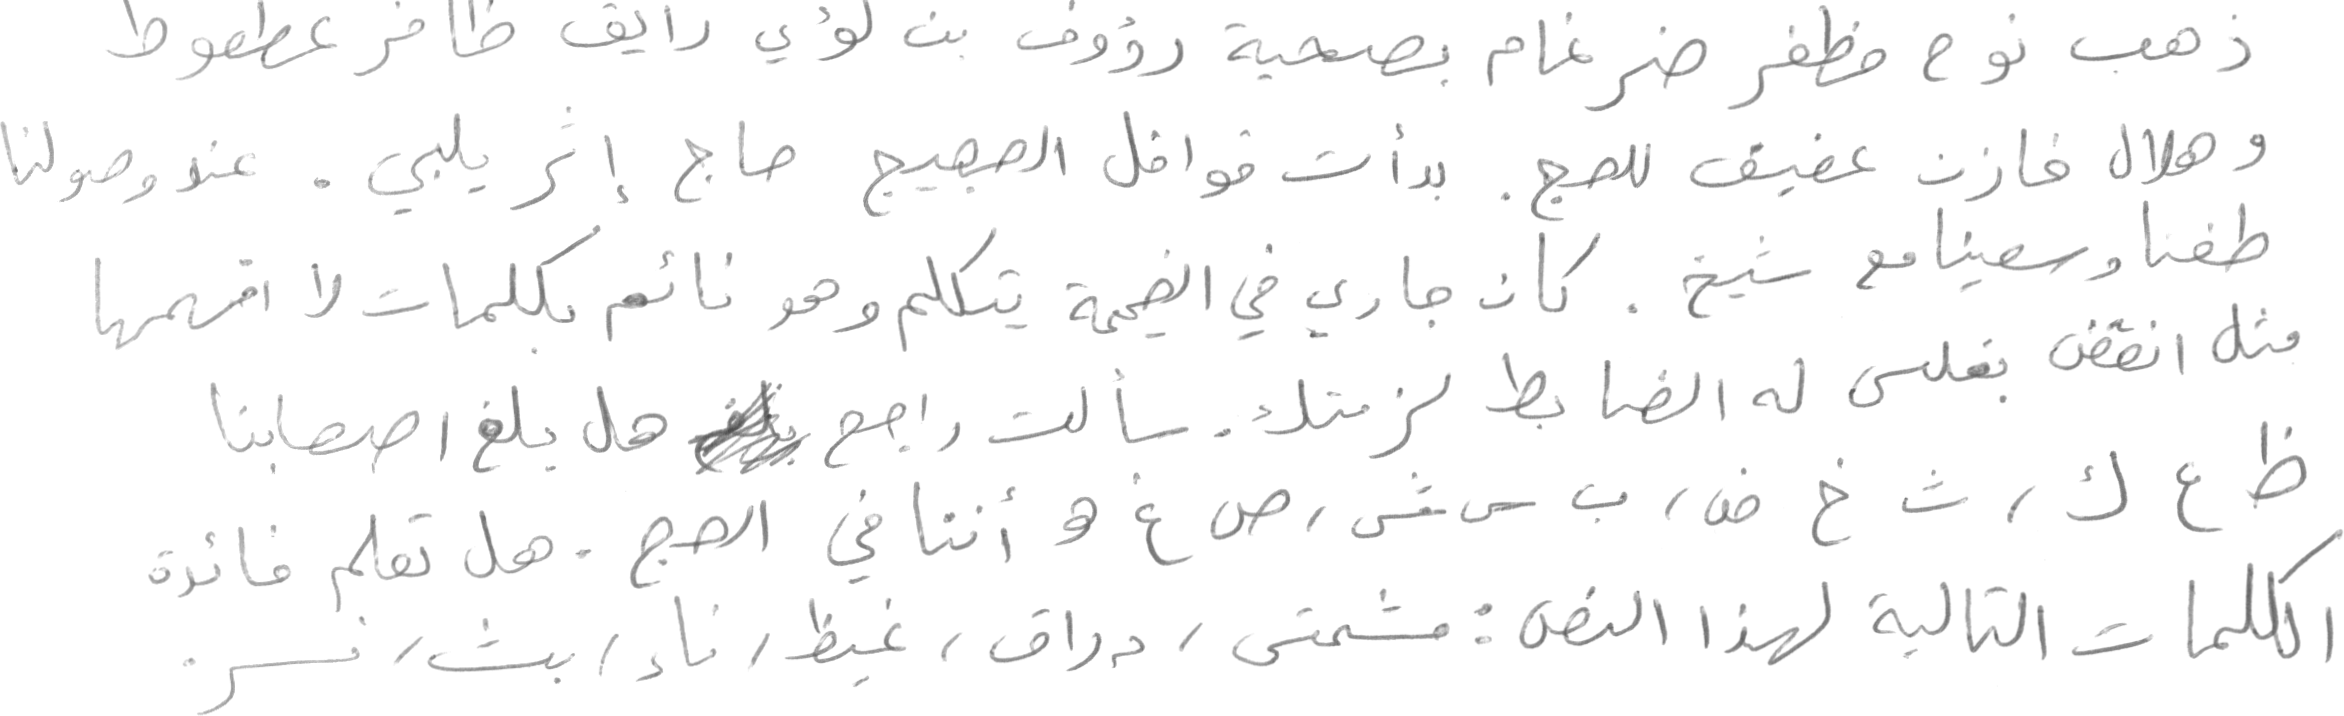 ذهب نوح مظفر ضرغام بصحبة رؤوف بن لؤي رايق ظافر عطعوط
وهلال خازن عفيف للحج. بدأت قوافل الحجيج حاج إثر يلبي. عند وصولنا
طفنا وسعينا مع شيخ. كان جاري في الخيمة يتكلم وهو نائم بكلمات لا افهمها
مثل انقض بغلس له الضابط لزمتك. سألت راجح هل يلغ اصحابنا
ظ ع ك، ث خ ض، ب س ش، ص غ ه أننا في الحج. هل تعلم فائدة
الكلمات التالية لهذا النص: مشمتى، دراق، غيظ، ناء، بث، نسر.